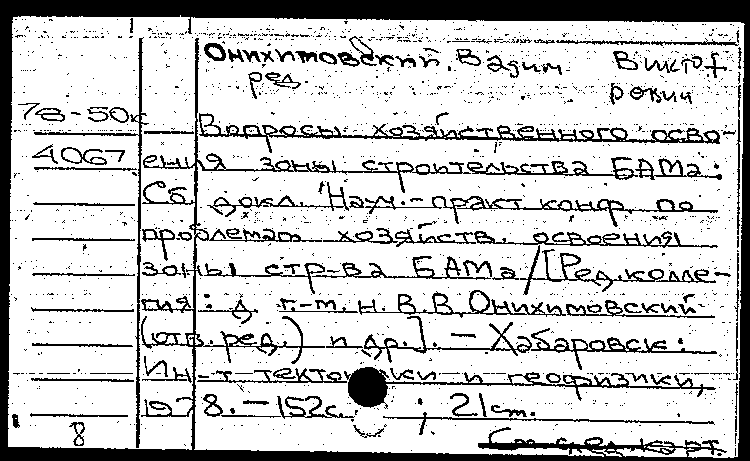 Онихимовский, Вадим Викто-
ред. рович
78-50к
Вопросы хозяйственного осво-
4067 ения зоны строительства БАМа:
Сб. докл. "Науч.-практ конф. по
проблемам хозяйств. освоения
зоны стр-ва БАМа / [Ред.колле-
гия: д. г.-м. н. В.В. Онихимовский
(отв. ред.) и др.]. — Хабаровск:
Ин-т тектоники и геофизики,
1978. — 152с. ; 21 см.
8 См след карт.